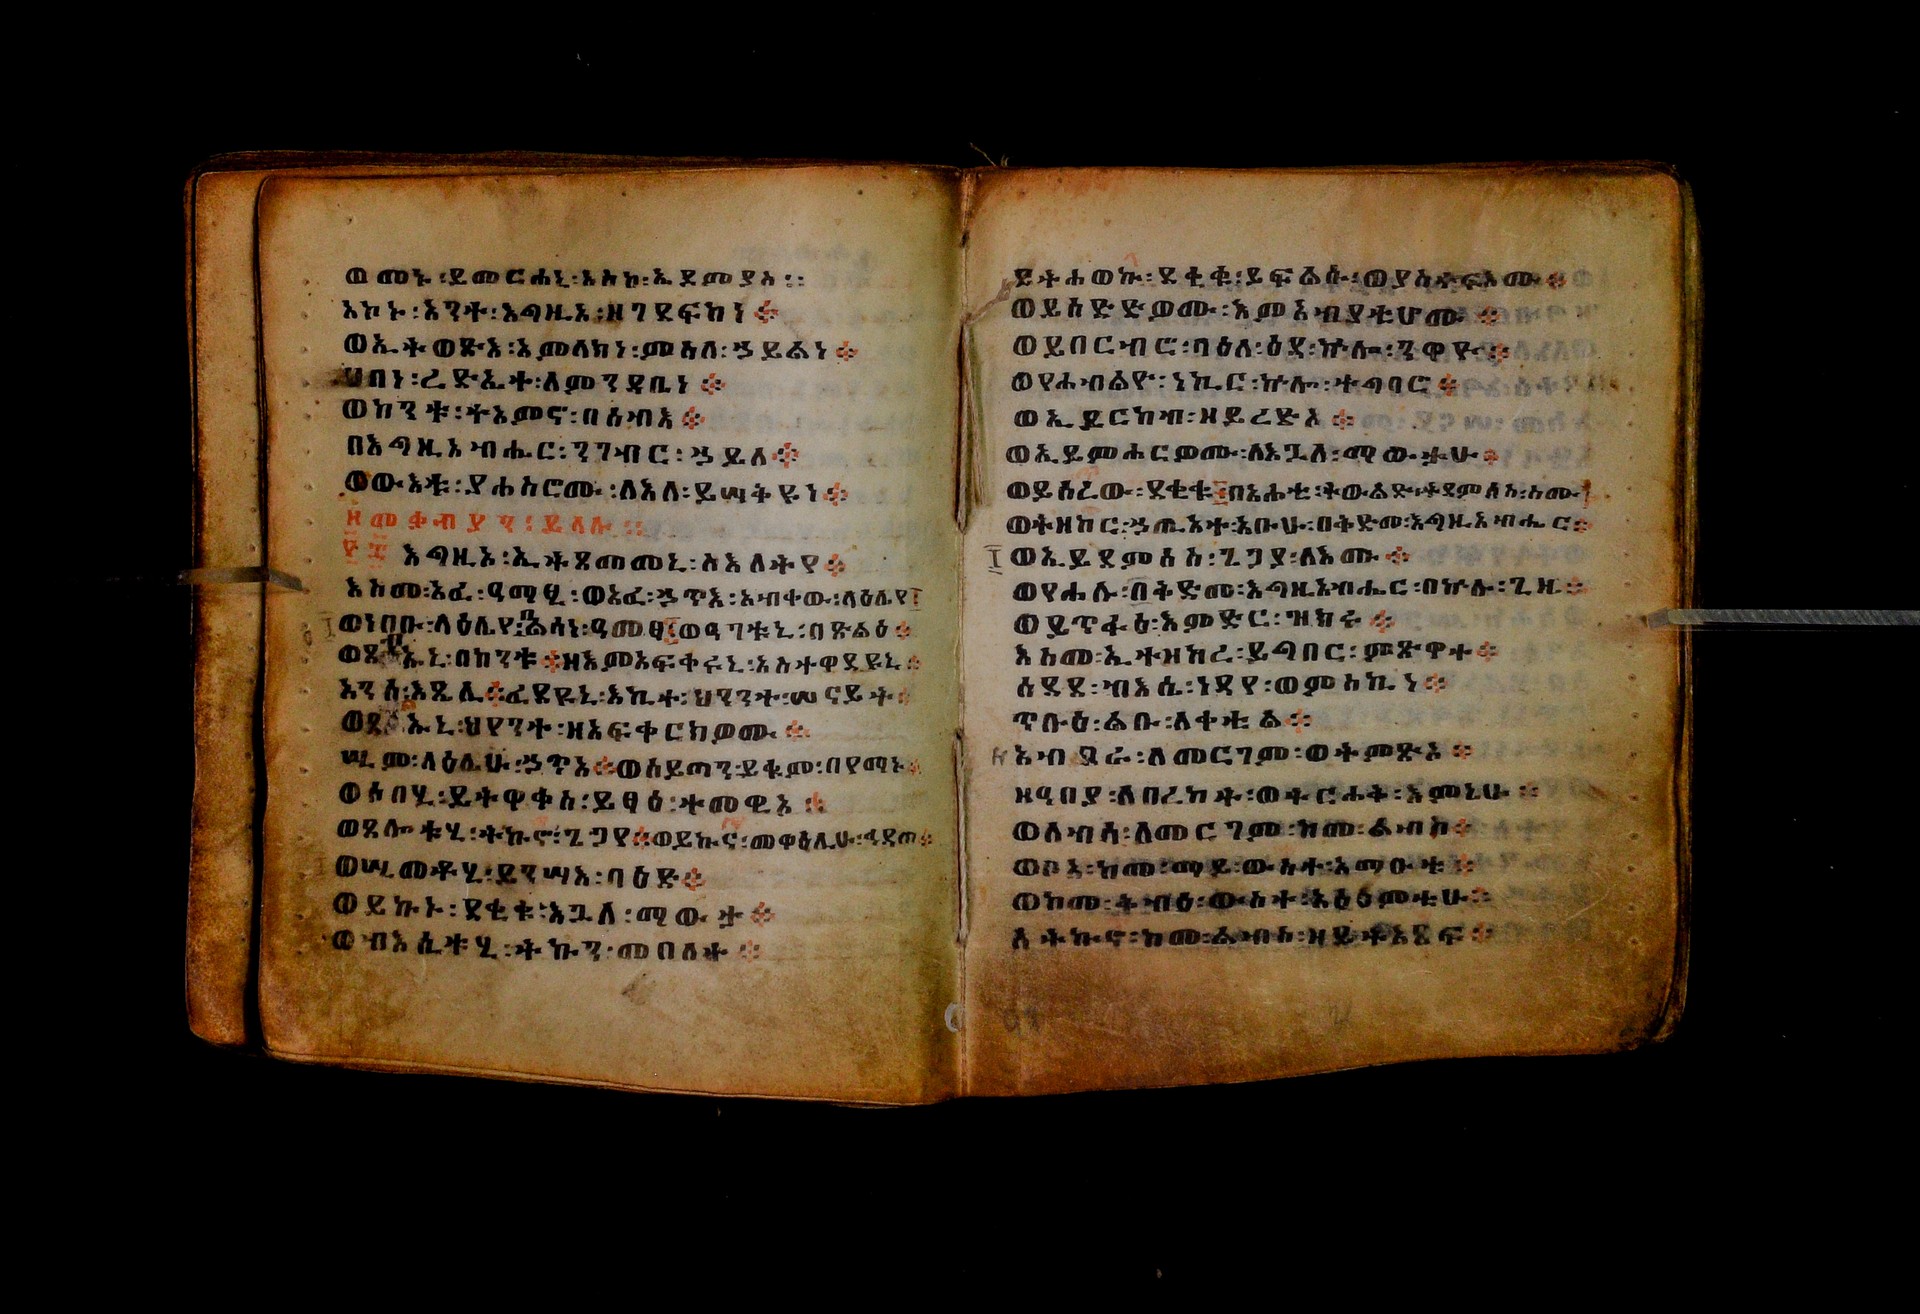 ወመኑ፡ይመርሐኒ፡እስከ፡ኤዶምያስ፡፡
አኮኑ፡አንተ፡እግዚኦ፡ዘገደፍከነ፨
ወኢትወጽእ፡አምላክነ፡ምስለ፡ኃይልነ፨
ሀበነ፡ረድኤተ፡ለምንዳቤነ፨
ወከንቱ፡ተአምኖ፡በሰብእ፨
በእግዚአብሔር፡ንገብር፡ኃይለ፨
ወውእቱ፡ያሐስሮሙ፡ለእለ፡ይሣቅዩነ፨
ዘመቀብያን፡
እግዚኦ፡ኢትጸመመኒ፡ስእለትየ፨
እስመ፡አፈ፡ዓማፂ፡ወአፈ፡ኃጥእ፡አብቀው፡ላዕሌየ
ወነበቡ፡ላዕሌየ፡በልሳነ፡ዓመፃ፡ወዓገቱኒ፡በጽልዕ፨
ኡኒ፡በከንቱ፨ዘእምአፍቀሩኒ፡አስተዋደዩኒ፨
አንሰ፡እጼሊ፨ፈደዩኒ፡እኪተ፡ህየንተ፡ሠናይት፨
ኡኒ፡ህየንተ፡ዘአፍቀርክዎሙ፨
ሢም፡ላዕሌሁ፡ኃጥአ፨ወሰይጣን፡ይቁም፡በየማኑ፨
ወሶበሂ፡ይትዋቀስ፡ይፃዕ፡ተመዊኦ፨
ወጸሎቱሂ፡ትኩኖ፡ጌጋየ፨ወይኩኖ፡መዋዕሊሁ፡ኅዳጠ፨
ወሢመቶሂ፡ይንሣእ፡ባዕድ፨
ወይኩኑ፡ደቂቁ፡እጓለ፡ማውታ፨
ወብእሲቱሂ፡ትኩን፡መበለተ፨
ይትሐወኩ፡ደቂቁ፡ይፍልሱ፡ወያስተፍእሙ፨
ወይስድድዎሙ፡እምአብያቲሆሙ፨
ወይበርብሮ፡ባዕለ፡ዕዳ፡ኵሎ፡ንዋዮ፨
ወየሐብልዮ፡ነኪር፡ኵሎ፡ተግባሮ፨
ወኢይርከብ፡ዘይረድኦ፨
ወኢይምሐርዎሙ፡ለእጓለ፡ማውታሁ፨
ወይሰረው፡ደቂቁ፡በአሐቲ፡ትውልድ፡ትደምሰስ፡ስሙ
ወትዘከር፡ኃጢአተ፡አቡሁ፡በቅድመ፡እግዚአብሔር፨
ወኢይደምሰስ፡ጌጋያ፡ለእሙ፨
ወየሀሉ፡በቅድመ፡እግዚአብሔር፡በኵሉ፡ጊዜ፨
ወይጥፋዕ፡እምድር፡ዝክሩ፨
እስመ፡ኢተዘከረ፡ይግበር፡ምጽዋተ፨
ሰደደ፡ብእሴ፡ነዳየ፡ወምስኪነ፨
ጥቡዕ፡ልቡ፡ለቀቲል፨
አብደራ፡ለመርገም፡ወትምጽኦ፨
ዘዓበያ፡ለበረከት፡ወትርሐቅ፡እምኔሁ፨
ወለብሳ፡ለመርገም፡ከመ፡ልብስ፨
ወቦአ፡ከመ፡ማይ፡ውስተ፡አማዑቱ፨
ወከመ፡ቅብዕ፡ውስተ፡አዕፅምቲሁ፨
ለትኩኖ፡ከመ፡ልብስ፡ዘይትአጸፍ፨